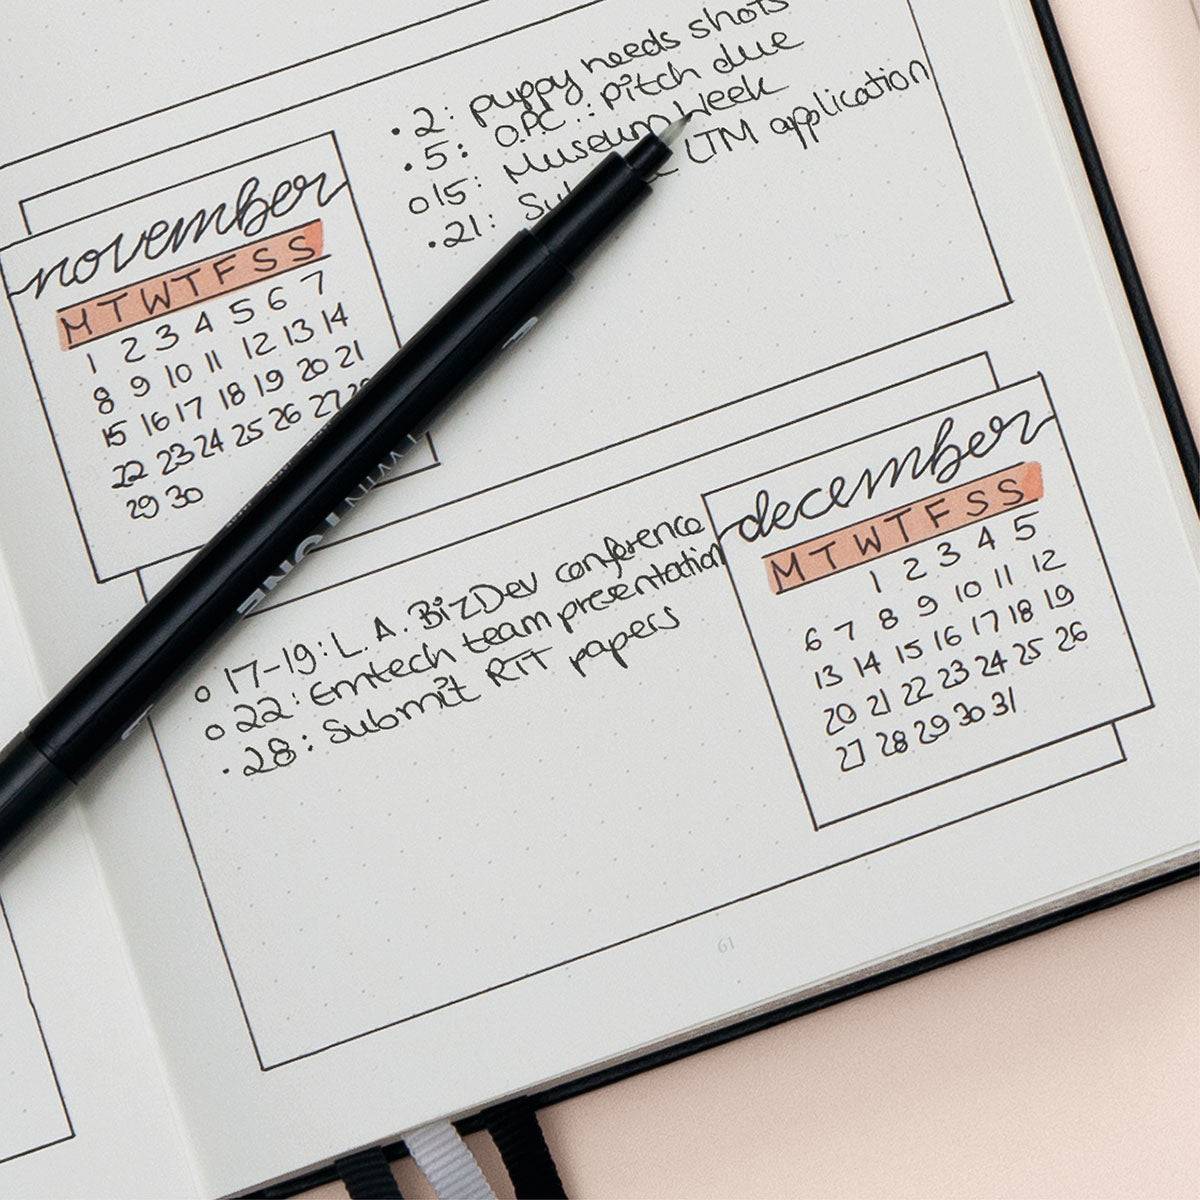 • 2: puppy needs shots
• 5: OPC: pitch due
o 15: Museum Week
• 21: LTM application
november
M T W T F S S
1 2 3 4 5 6 7
8 9 10 11 12 13 14
15 16 17 18 19 20 21
22 23 24 25 26 27
29 30
december
M T W T F S S
1 2 3 4 5
6 7 8 9 10 11 12
13 14 15 16 17 18 19
20 21 22 23 24 25 26
27 28 29 30 31
o 17-19: L.A. BizDev conference
o 22: Emtech team presentation
• 28: Submit RTT papers
61